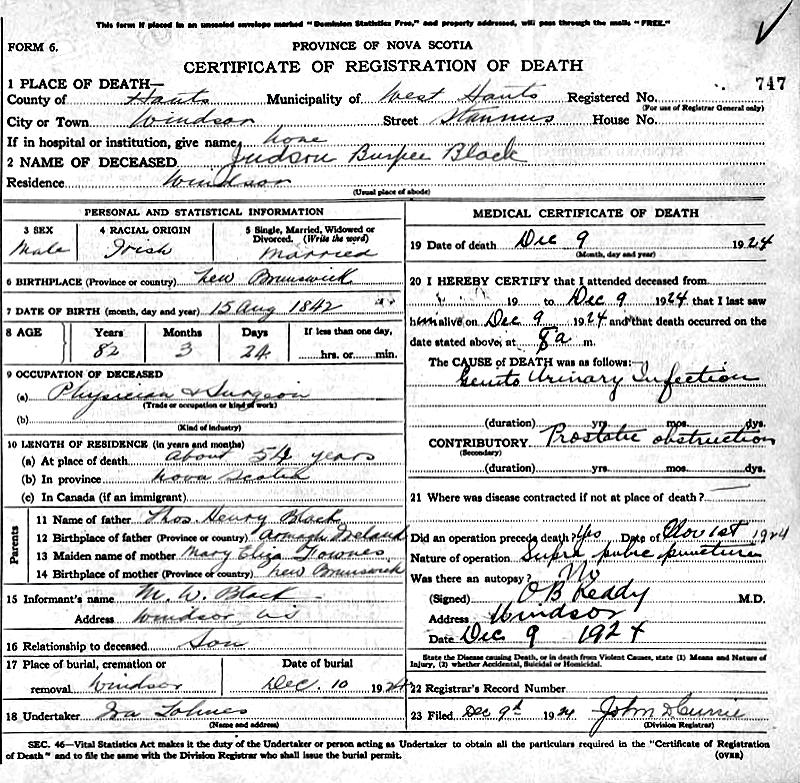 This form if placed in an unsealed envelope marked "Dominion Statistics Free," and property addressed, will pass through the mails "FREE."
FORM 6.
PROVINCE OF NOVA SCOTIA
CERTIFICATE OF REGISTRATION OF DEATH
747
1 PLACE OF DEATH—
County of Hants Municipality of West Hants Registered No.
(For use of Registrar General only)
City or Town Windsor Street Stannus House No.
If in hospital or institution, give name home
2 NAME OF DECEASED Judson Burpee Black
Residence Windsor
(Usual place of abode)
PERSONAL AND STATISTICAL INFORMATION
3 SEX Male
4 RACIAL ORIGIN Irish
5 Single, Married, Widowed or Divorced. (Write the word) Married
6 BIRTHPLACE (Province or country) New Brunswick
7 DATE OF BIRTH (month, day and year) 15 Aug 1842
8 AGE Years Months Days If less than one day,
82 3 24 hrs. or min.
9 OCCUPATION OF DECEASED
(a) Physician & Surgeon
(Trade or occupation or kind of work)
(b)
(Kind of industry)
10 LENGTH OF RESIDENCE (in years and months)
(a) At place of death About 54 years
(b) In province Nova Scotia
(c) In Canada (if an immigrant)
Parents
11 Name of father Thos. Henry Black
12 Birthplace of father (Province or country) Armagh Ireland
13 Maiden name of mother Mary Eliza Fownes
14 Birthplace of mother (Province or country) New Brunswick
15 Informant's name M. W. Black
Address Windsor NS
16 Relationship to deceased Son
17 Place of burial, cremation or removal Windsor
Date of burial Dec. 10 1924
18 Undertaker Ira
(Name and address)
MEDICAL CERTIFICATE OF DEATH
19 Date of death Dec 9 1924
(Month, day and year)
20 I HEREBY CERTIFY that I attended deceased from
19 to Dec 9 1924 that I last saw
him alive on Dec 9 1924 and that death occurred on
date stated above, at 8 a m.
The CAUSE of DEATH was as follows:—
Genito Urinary Infection
(duration) yrs. mos. dys.
CONTRIBUTORY. Prostatic obstruction
(Secondary)
(duration) yrs. mos. dys.
21 Where was disease contracted if not at place of death?
Did an operation precede death? Yes Date of Nov 1st 1924
Nature of operation Supra pubic puncture
Was there an autopsy? No
(Signed) O B Keddy M.D.
Address Windsor
Date Dec 9 1924
State the Disease causing Death, or in death from Violent Causes, state (1) Means and Nature of
Injury, (2) whether Accidental, Suicidal or Homicidal.
22 Registrar's Record Number
23 Filed Dec 9th 1924 John D Currie
(Division Registrar)
SEC. 46—Vital Statistics Act makes it the duty of the Undertaker or person acting as Undertaker to obtain all the particulars required in the "Certificate of Registration
of Death" and to file the same with the Division Registrar who shall issue the burial permit.
(OVER)